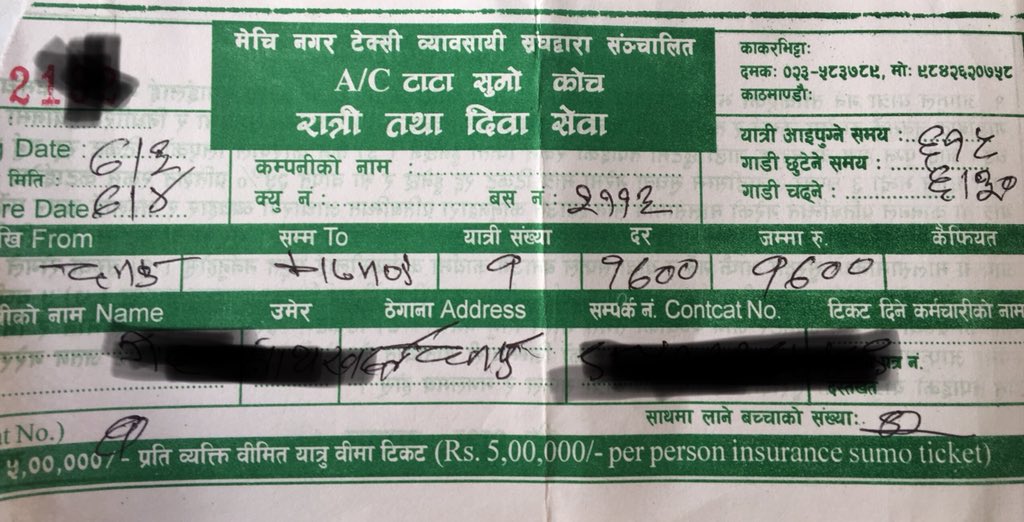 मेचि नगर टेक्सी व्यावसायी संघद्वारा सञ्चालित
A/C टाटा सुमो कोच
रात्री तथा दिवा सेवा
काकरभिट्टाः
दमकः ०२३-५८३७८९, मोः ९८४२६२०७५८
काठमाण्डौः
Date
मिति
re Date
कम्पनीको नाम
क्यु न.: बस न. २११३
यात्री आइपुग्ने समय :
गाडी छुटेने समय :
गाडी चढ्ने :
खि From सम्म To यात्री संख्या दर जम्मा रु. कैफियत
दमक १ १६०० १६००
ीको नाम Name उमेर ठेगाना Address सम्पर्क नं. Contcat No. टिकट दिने कर्मचारीको नाम
दमक
त्र न.
दस्तखत
साथमा लाने बच्चाको संख्याः
t No.)
५,००,०००/- प्रति व्यक्ति वीमित यात्रु वीमा टिकट (Rs. 5,00,000/- per person insurance sumo ticket)